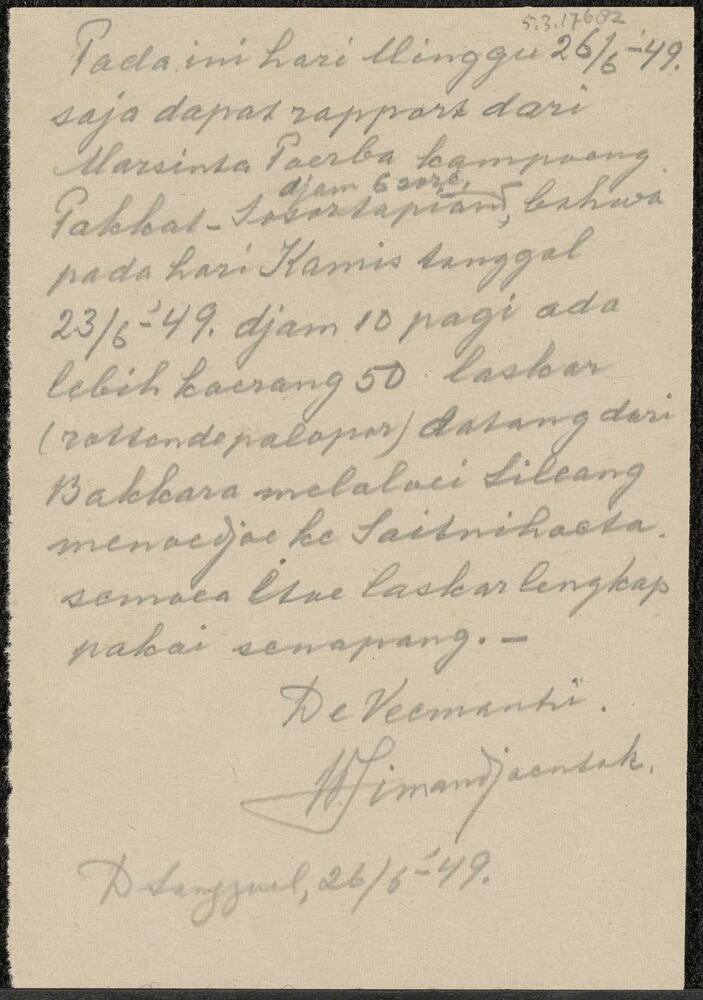 5.3.17682
Pada ini hari Minggu 26/6-'49.
saja dapat rapport dari
Marsinta Poerba kampoeng
djam 6 sore,
Pakkat-Sosortapian, bahwa
pada hari Kamis tanggal
23/6-'49. djam 10 pagi ada
lebih koerang 50 laskar
(rottende palopor) datang dari
Bakkara melaloei Sileang
menoedjoe ke Saitnihoeta.
semoea itoe laskar lengkap
pakai senapang. -
De
Simandjoentak.
D Sanggoel, 26/6-'49.